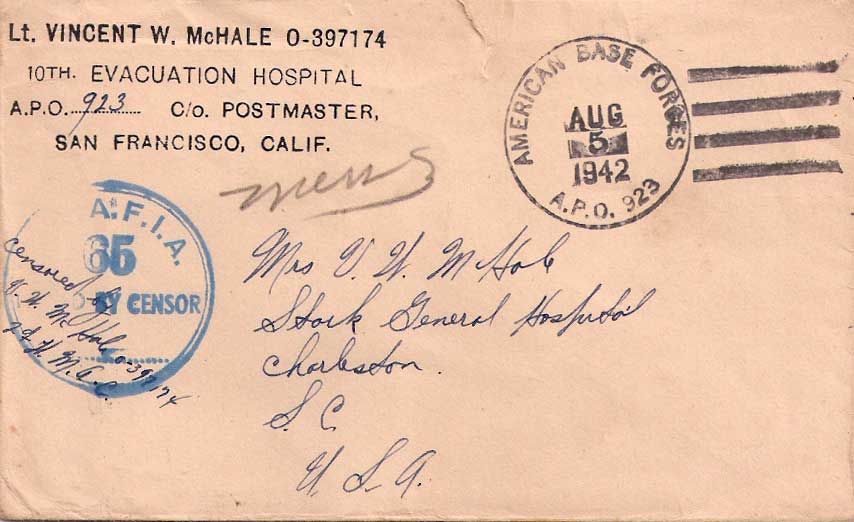 Lt. VINCENT W. McHALE O-397174
10TH. EVACUATION HOSPITAL
A.P.O. 923 C/o. POSTMASTER,
SAN FRANCISCO, CALIF.
AMERICAN BASE FORCES
AUG
5
1942
A.P.O. 923
A.F.I.A.
65
BY CENSOR
censored by
V. W. McHale O-397174
M.A.C.
Mrs V. W. McHale
Stark General Hospital
Charleston.
S. C.
U. S. A.